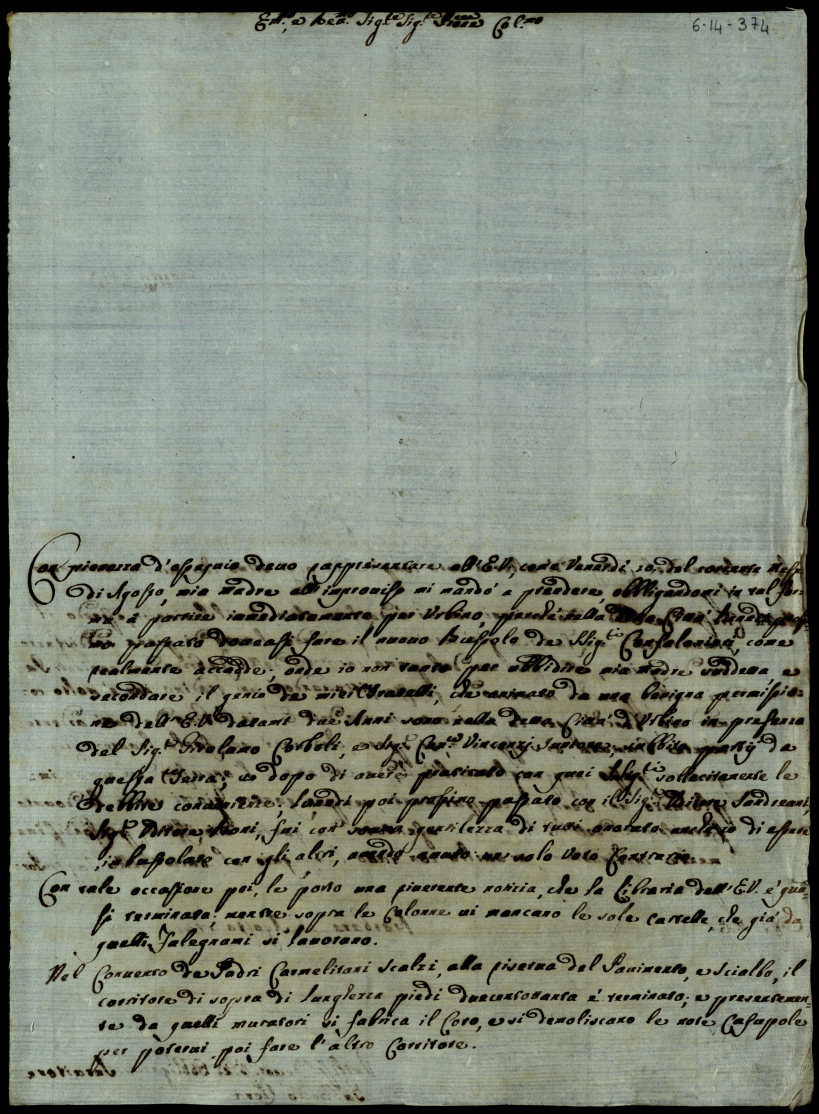 Em.o, e Rev.mo Sig.re Sig.re Prone Col.mo
6-14-374
Con pienezza d'ossequio devo rappresentare all'E.V., come Venerdì 20 del corrente Mese
di Agosto, mia Madre all'improviso mi mandò a prendere, obbligandomi in tal for-
ma à partire immediatamente per Urbino, perche nella Città Lunedì pros-
mo passato dovevasi fare il nuovo Bussolo de Sig.ri Confalonieri, come
realmente accadde; onde io non tanto per ubbidire mia Madre suddetta, e
secondare il genio de miei Fratelli, che animato da una benigna permissio-
ne dell'E.V. datami due Anni sono nella detta Città d'Urbino in presenza
del Sig.r Girolamo Corboli, e Sig.r Can.co Vincenzi, subbito partij da
questa Terra; e dopo di avere praticato con quei Sig.ri sollecitamente le
debbite convenienze; Lunedì poi prossimo passato con il Sig.r
Sig.r fui con somma gentilezza di tutti onorato anch'io di essere
imbussolato con gli altri, avendo avuto un solo Voto Contrario.
Con tale occasione poi, le porto una riverente notizia, che la Libraria dell'E.V. è qua-
si terminata; mentre sopra le Colonne vi mancano le sole cartelle, che già da
quelli Falegnami si lavorano.
Nel Convento de Padri Carmelitani Scalzi, alla riserva del Pavimento, e Scialbo, il
corritore di sopra di lunghezza piedi duecentottanta è terminato; e presentemen-
te da quelli muratori si fabrica il Coro, e si demoliscano le note Casupole
per potervi poi fare l'altro Corritore.